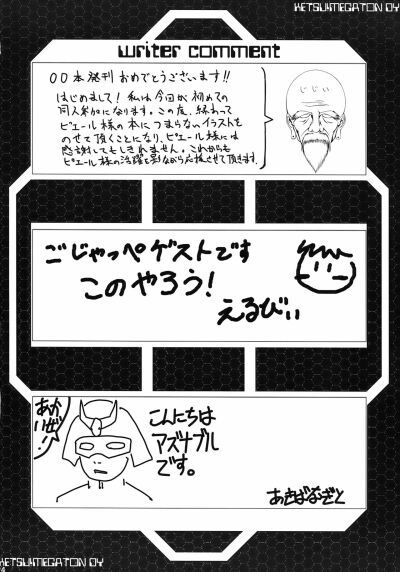 KETSU!MEGATON 04
writer comment
00本発刊 おめでとうございます!!
はじめまして! 私は今回が初めての
同人参加になります。この度、縁あって
ピエール様の本につまらないイラストを
のせて頂くことになり、ピエール様には
感謝してもしきれません。これからも
ピエール様の活躍を影ながら応援させて頂きます。
じじい
ごじゃっぺゲストです
このやろう!
えるびぃ
あかいぜ!!
こんにちは
アズナブル
です。
あきばなぎと
KETSU!MEGATON 04